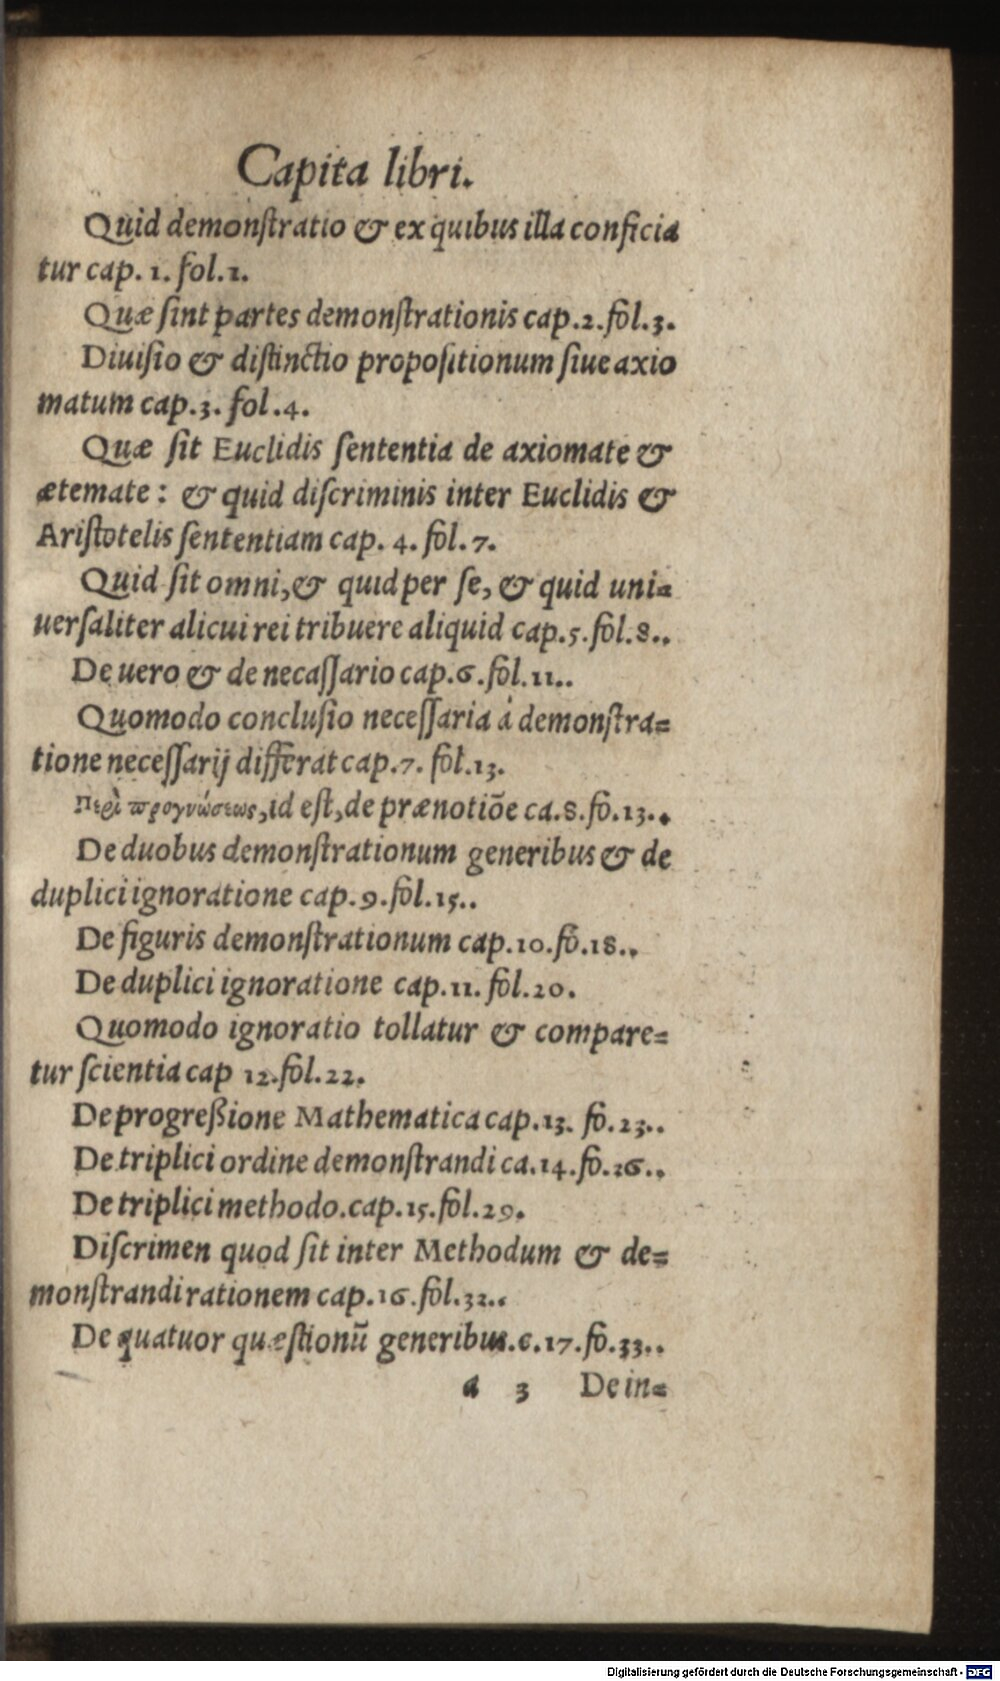 Capita libri.
Quid demonſtratio & ex quibus illa conficia
tur cap. 1. fol.1.
Quæ ſint partes demonſtrationis cap.2.fol.3.
Diuiſio & diſtinctio propoſitionum ſiue axio
matum cap.3. fol.4.
Quæ ſit Euclidis ſententia de axiomate &
ætemate: & quid diſcriminis inter Euclidis &
Ariſtotelis ſententiam cap. 4. fol.7.
Quid ſit omni,& quid per ſe, & quid uni-
uerſaliter alicui rei tribuere aliquid cap.5.fol.8..
De uero & de necaſſario cap.6.fol.11..
Quomodo concluſio neceſſaria à demonſtra-
tione neceſſarij differat cap.7. fol.13.
Περὶ προγνώσεως,id eſt,de prænotiōe ca.8.fo.13..
De duobus demonſtrationum generibus & de
duplici ignoratione cap.9.fol.15..
De figuris demonſtrationum cap.10.fo.18..
De duplici ignoratione cap.11. fol.20.
Quomodo ignoratio tollatur & compare-
tur ſcientia cap 12.fol.22.
De progreßione Mathematica cap.13. fo.23..
De triplici ordine demonſtrandi ca.14.fo.26..
De triplici methodo.cap.15.fol.29.
Diſcrimen quod ſit inter Methodum & de-
monſtrandi rationem cap.16.fol.32..
De quatuor quæſtionū generibus.c.17.fo.33..
a 3 De in-
Digitalisierung gefördert durch die Deutsche Forschungsgemeinschaft - DFG